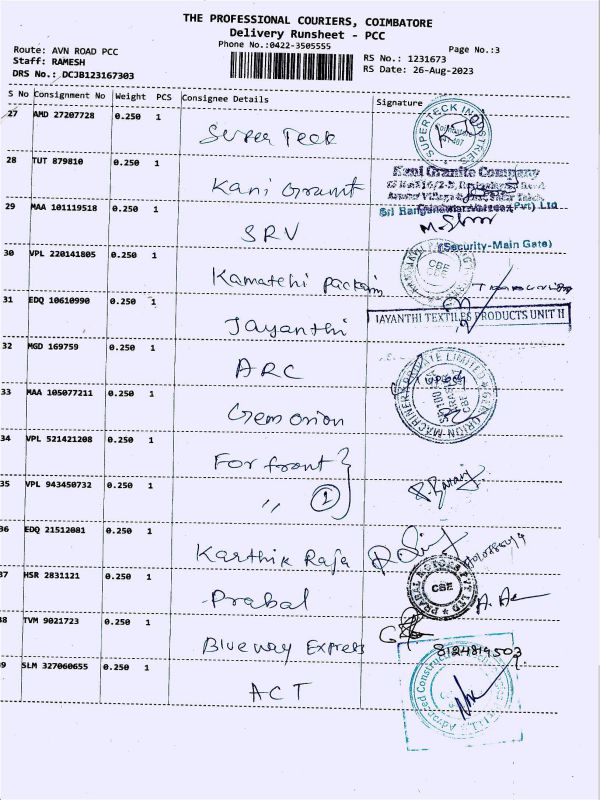 THE PROFESSIONAL COURIERS, COIMBATORE
Delivery Runsheet - PCC
Phone No.:0422-3505555
Page No.:3
Route: AVN ROAD PCC
Staff: RAMESH
DRS No.: DCJB123167303
RS No.: 1231673
RS Date: 26-Aug-2023
S No Consignment No Weight PCS Consignee Details Signature
27 AMD 27207728 0.250 1
Super Teck
SUPERTECK INDUSTRIES
28 TUT 879810 0.250 1
Kani Granit
Kani Granite Company
29 MAA 101119518 0.250 1
SRV
(Security-Main Gate)
30 VPL 220141805 0.250 1
Kamatchi packain
CBE
31 EDQ 10610990 0.250 1
Jayanthi
JAYANTHI TEXTILES PRODUCTS UNIT II
32 MGD 169759 0.250 1
ARC
33 MAA 105077211 0.250 1
Gem orion
34 VPL 521421208 0.250 1
For front
35 VPL 943450732 0.250 1
〃 1
36 EDQ 21512081 0.250 1
Karthik Raja
37 HSR 2831121 0.250 1
Prabal
PRABAL MOTORS PVT LTD
CBE
38 TVM 9021723 0.250 1
Blueway Express
8124814503
39 SLM 327060655 0.250 1
ACT